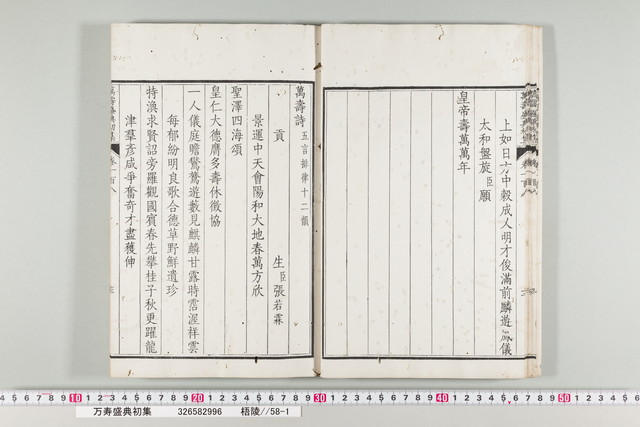 上如日方中穀成人明才俊滿前麟遊鳳儀
太和盤旋臣願
皇帝壽萬萬年
萬壽詩五言排律十二韻
貢生臣張若霖
景運中天會陽和大地春萬方欣
聖澤四海頌
皇仁大德膺多壽休徵協
一人儀庭瞻鸑鷟遊藪見麒麟甘露時霑渥祥雲
每郁紛明良歌合德草野鮮遺珍
特渙求賢詔旁羅觀國賓春先攀桂子秋更躍龍
津羣彥咸爭奮奇才盡獲伸
万寿盛典初集 326582996 梧陵//58-1
10 20 30 40 50